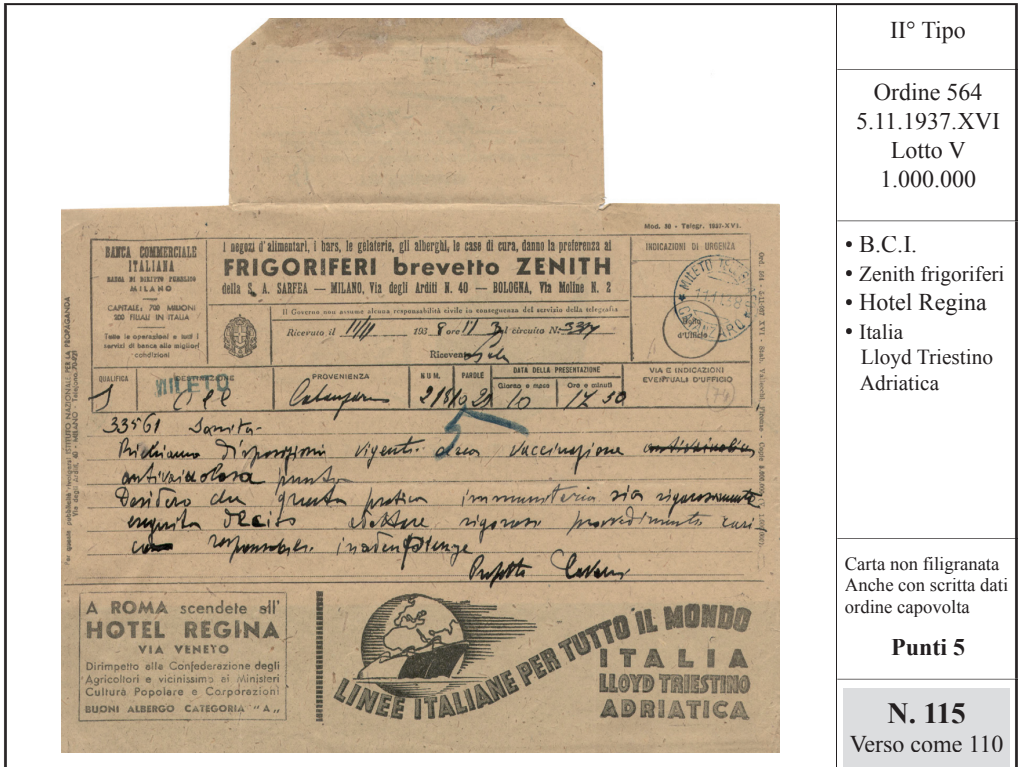 Mod. 30 - Telegr. 1937-XVI.
BANCA COMMERCIALE
ITALIANA
BANCA DI DIRITTO PUBBLICO
MILANO
CAPITALE: 700 MILIONI
200 FILIALI IN ITALIA
Tutte le operazioni e tutti i
servizi di banca alle migliori
condizioni
I negozi d'alimentari, i bars, le gelaterie, gli alberghi, le case di cura, danno la preferenza ai
FRIGORIFERI brevetto ZENITH
della S. A. SARFEA — MILANO, Via degli Arditi N. 40 — BOLOGNA, Via Moline N. 2
Il Governo non assume alcuna responsabilità civile in conseguenza del servizio della telegrafia
Ricevuto il 11/11 1938 ore 17 sul circuito N.
Ricevente
INDICAZIONI DI URGENZA
MILETO
CATANZARO
d'Ufficio
QUALIFICA
DESTINAZIONE
MILETO
PROVENIENZA
Catanzaro
NUM.
PAROLE
DATA DELLA PRESENTAZIONE
Giorno e mese
10
Ore e minuti
17 50
VIA E INDICAZIONI
EVENTUALI D'UFFICIO
(74)
33561 Sanità -
Richiamo disposizioni vigenti circa vaccinazione
antivaiolosa punto
Desidero che questa pratica immunitaria sia rigorosamente
eseguita deciso adottare rigorosi provvedimenti
responsabili inadempienze
Prefetto
Per questa pubblicità rivolgersi ISTITUTO NAZIONALE PER LA PROPAGANDA
Via degli Arditi, 40 - MILANO - Telefono
A ROMA scendete all'
HOTEL REGINA
VIA VENETO
Dirimpetto alla Confederazione degli
Agricoltori e vicinissimo ai Ministeri
Cultura Popolare e Corporazioni
BUONI ALBERGO CATEGORIA "A„
LINEE ITALIANE PER TUTTO IL MONDO
ITALIA
LLOYD TRIESTINO
ADRIATICA
II° Tipo
Ordine 564
5.11.1937.XVI
Lotto V
1.000.000
• B.C.I.
• Zenith frigoriferi
• Hotel Regina
• Italia
Lloyd Triestino
Adriatica
Carta non filigranata
Anche con scritta dati
ordine capovolta
Punti 5
N. 115
Verso come 110